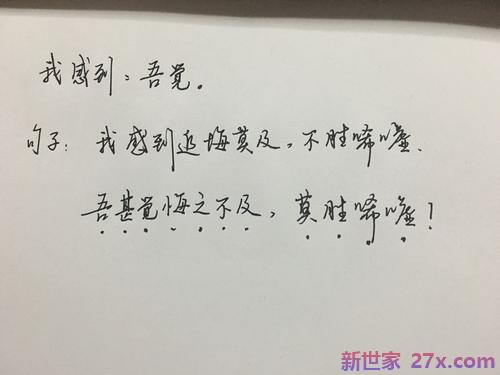 我感到：吾觉。
句子：我感到追悔莫及，不胜唏嘘.
吾甚觉悔之不及，莫胜唏嘘！
新世家 27x.com